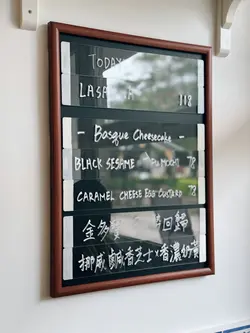 TODAY
LASA A 118
- Basque Cheesecake -
BLACK SESAME MOCHI 78
CARAMEL CHEESE EGG CUSTARD 78
金多 回歸
挪威鹹香芝士x香濃奶黃